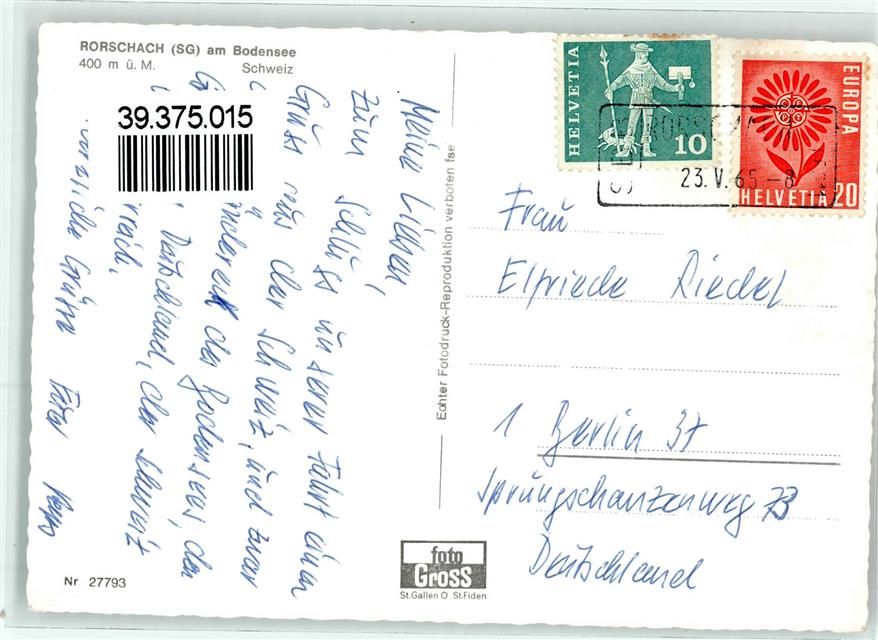 RORSCHACH (SG) am Bodensee
400 m ü. M. Schweiz
39.375.015
Meine Lieben,
zum Schluß unserer Fahrt einen
Gruß aus der Schweiz, und zwar
der Bodensee, den
Deutschland, der Schweiz
reich.
Grüße Eure
Echter Fotodruck-Reproduktion verboten fse
HELVETIA
10
EUROPA
HELVETIA 20
23.V.65-8
Frau
Elfriede Riedel
1 Berlin 37
Sprungschanzenweg 73
Deutschland
foto
Gross
St.Gallen O St.Fiden
Nr 27793